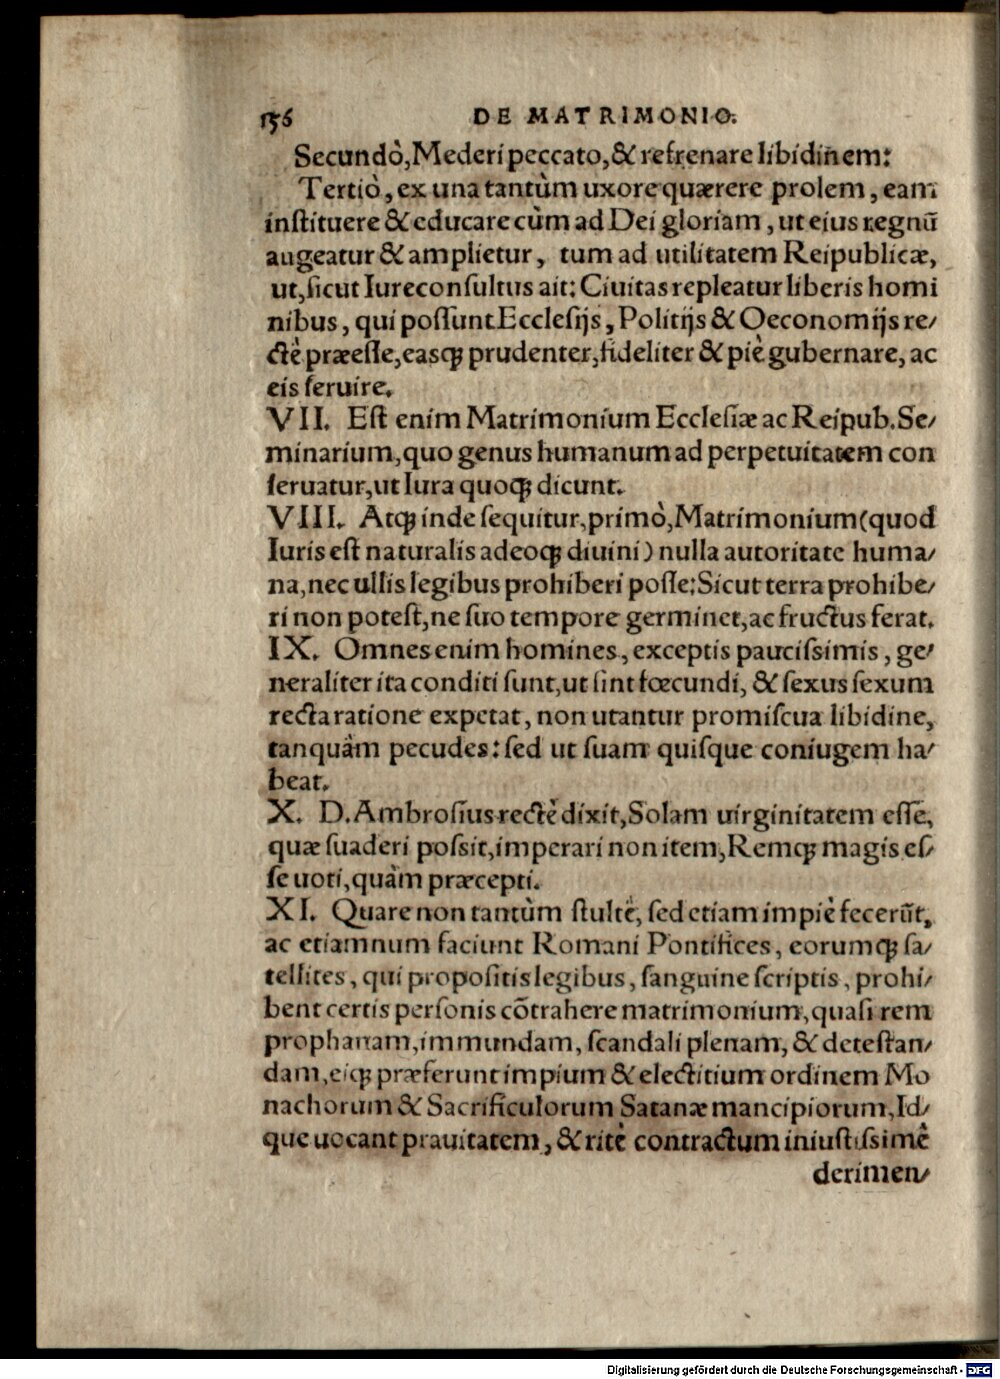 156 DE MATRIMONIO.
Secundò, Mederi peccato, & refrenare libidinem:
Tertiò, ex una tantùm uxore quærere prolem, eam
inſtituere & educare cùm ad Dei gloriam, ut eius regnũ
augeatur & amplietur, tum ad utilitatem Reipublicæ,
ut, ſicut Iureconſultus ait: Ciuitas repleatur liberis homi
nibus, qui poſſunt Eccleſijs, Politijs & Oeconomijs re/
ctè præeſſe, easq́; prudenter, fideliter & piè gubernare, ac
eis ſeruire.
VII. Eſt enim Matrimonium Eccleſiæ ac Reipub. Se/
minarium, quo genus humanum ad perpetuitatem con
ſeruatur, ut Iura quoq; dicunt.
VIII. Atq; inde ſequitur, primò, Matrimonium (quod
Iuris eſt naturalis adeoq; diuini) nulla autoritate huma/
na, nec ullis legibus prohiberi poſſe: Sicut terra prohibe/
ri non poteſt, ne ſuo tempore germinet, ac fructus ferat.
IX. Omnes enim homines, exceptis pauciſsimis, ge/
neraliter ita conditi ſunt, ut ſint fœcundi, & ſexus ſexum
recta ratione expetat, non utantur promiſcua libidine,
tanquàm pecudes: ſed ut ſuam quiſque coniugem ha/
beat.
X. D. Ambroſius rectè dixit, Solam uirginitatem eſſe,
quæ ſuaderi poſsit, imperari non item, Remq; magis eſ/
ſe uoti, quàm præcepti.
XI. Quare non tantùm ſtultè, ſed etiam impiè fecerũt,
ac etiamnum faciunt Romani Pontifices, eorumq; ſa/
tellites, qui propoſitis legibus, ſanguine ſcriptis, prohi/
bent certis perſonis cõtrahere matrimonium, quaſi rem
prophanam, immundam, ſcandali plenam, & deteſtan/
dam, eiq; præferunt impium & electitium ordinem Mo
nachorum & Sacrificulorum Satanæ mancipiorum, Id/
que uocant prauitatem, & ritè contractum iniuſtiſsimè
derimen/
Digitalisierung gefördert durch die Deutsche Forschungsgemeinschaft - DFG